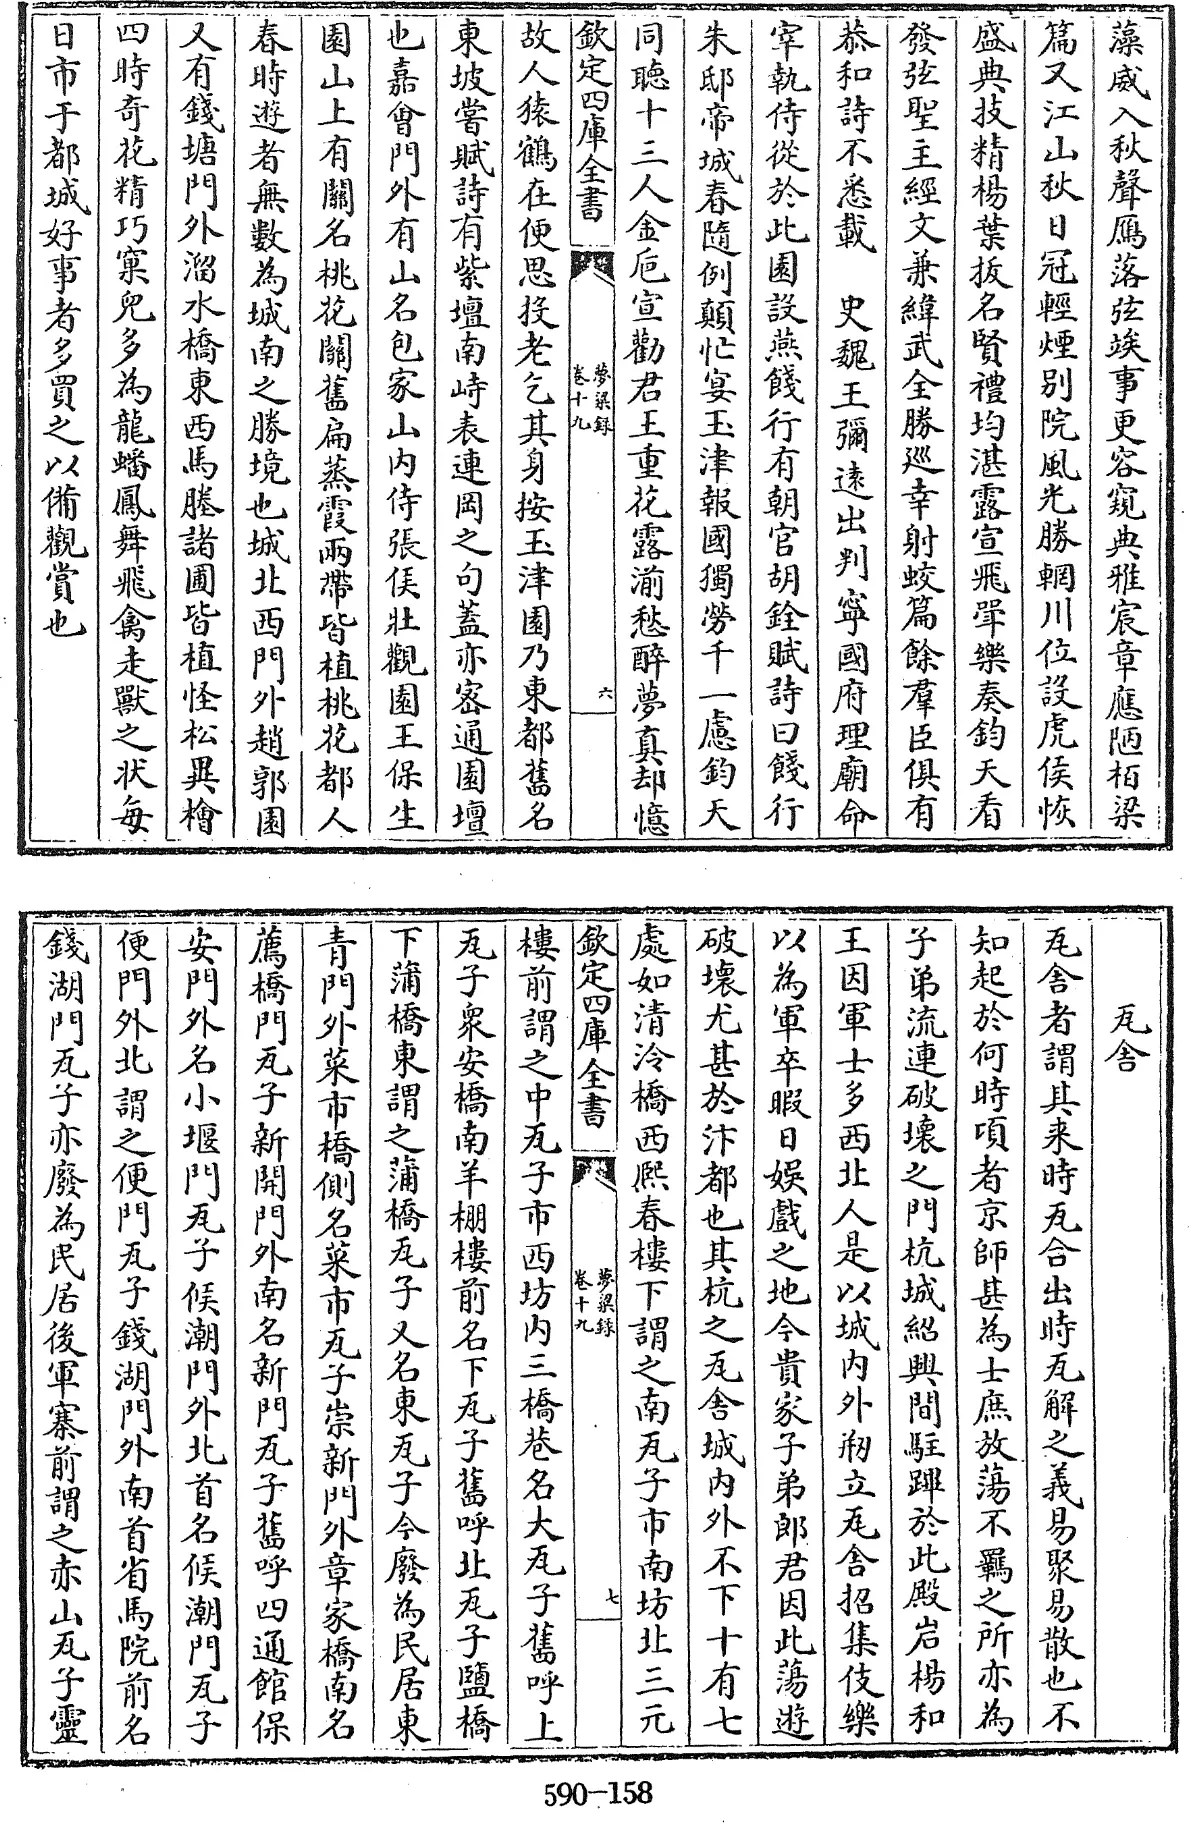 藻威入秋聲鴈落弦竢事更容窺典雅宸章應陋栢梁
篇又江山秋日冠輕煙别院風光勝輞川位設虎侯恢
盛典技精楊葉拔名賢禮均湛露宣飛斝樂奏鈞天看
發弦聖主經文兼緯武全勝廵幸射蛟篇餘羣臣俱有
恭和詩不悉載　史魏王彌逺出判寧國府理廟命
宰執侍從於此園設燕餞行有朝官胡銓賦詩曰餞行
朱邸帝城春隨例顛忙宴玉津報國獨勞千一慮鈞天
同聴十三人金巵宣勸君王重花露湔愁醉夢真却憶
欽定四庫全書　夢梁録　卷十九　六
故人猿鶴在便思投老乞其身按玉津園乃東都舊名
東坡嘗賦詩有紫壇南峙表連岡之句蓋亦宻通園壇
也嘉會門外有山名包家山内侍張侯壯觀園王保生
園山上有關名桃花關舊扁蒸霞兩帶皆植桃花都人
春時遊者無數為城南之勝境也城北西門外趙郭園
又有錢塘門外溜水橋東西馬塍諸圃皆植怪松異檜
四時奇花精巧窠兒多為龍蟠鳳舞飛禽走獸之状毎
日市于都城好事者多買之以備觀賞也
瓦舍
瓦舍者謂其来時瓦合出時瓦解之義易聚易散也不
知起於何時項者京師甚為士庶放蕩不羈之所亦為
子弟流連破壊之門杭城紹興間駐蹕於此殿岩楊和
王因軍士多西北人是以城内外剏立瓦舍招集伎樂
以為軍卒暇日娯戯之地今貴家子弟郎君因此蕩遊
破壊尤甚於汴都也其杭之瓦舍城内外不下十有七
處如清泠橋西熈春樓下謂之南瓦子市南坊北三元
欽定四庫全書　夢梁録　卷十九　七
樓前謂之中瓦子市西坊内三橋巷名大瓦子舊呼上
瓦子衆安橋南羊棚樓前名下瓦子舊呼北瓦子鹽橋
下蒲橋東謂之蒲橋瓦子又名東瓦子今廢為民居東
青門外菜市橋側名菜市瓦子崇新門外章家橋南名
薦橋門瓦子新開門外南名新門瓦子舊呼四通館保
安門外名小堰門瓦子候潮門外北首名候潮門瓦子
便門外北謂之便門瓦子錢湖門外南首省馬院前名
錢湖門瓦子亦廢為民居後軍寨前謂之赤山瓦子靈
590-158